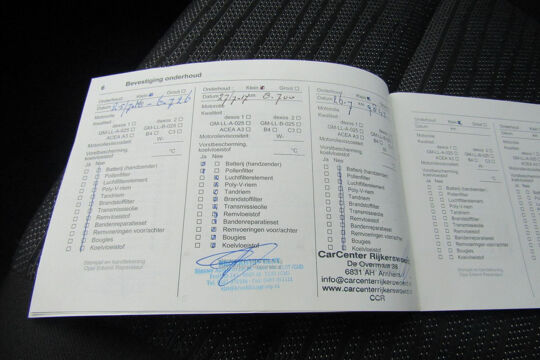 6 Bevestiging onderhoud
Onderhoud Klein Groot
Datum
Motorolie
Kwaliteit
dexos 1 dexos 2
GM-LL-A-025 GM-LL-B-025
ACEA A3 B4 C3
Motorolieviscositeit W-
Vorstbescherming,
koelvloeistof °C
Ja Nee
Batterij (handzender)
Pollenfilter
Luchtfilterelement
Poly-V-riem
Tandriem
Brandstoffilter
Transmissieolie
Remvloeistof
Bandenreparatieset
Remvoeringen voor/achter
Bougies
Koelvloeistof
Stempel en handtekening
Opel Erkend Reparateur
Onderhoud Klein Groot
Datum 27/7-17 km 8.700
Motorolie
Kwaliteit
dexos 1 dexos 2
GM-LL-A-025 GM-LL-B-025
ACEA A3 B4 C3
Motorolieviscositeit W-
Vorstbescherming,
koelvloeistof °C
Ja Nee
Batterij (handzender)
Pollenfilter
Luchtfilterelement
Poly-V-riem
Tandriem
Brandstoffilter
Transmissieolie
Remvloeistof
Bandenreparatieset
Remvoeringen voor/achter
Bougies
Koelvloeistof
Onderhoud Klein Groot
Datum km
Motorolie
Kwaliteit
dexos 1 dexos 2
GM-LL-A-025 GM-LL-B-025
ACEA A3 B4 C3
Motorolieviscositeit W-
Vorstbescherming,
koelvloeistof °C
Ja Nee
Batterij (handzender)
Pollenfilter
Luchtfilterelement
Poly-V-riem
Tandriem
Brandstoffilter
Transmissieolie
Remvloeistof
Bandenreparatieset
Remvoeringen voor/achter
Bougies
Koelvloeistof
CarCenter Rijkerswoerd
De Overmaat 38
6831 AH Arnhem
info@carcenterrijkerswoerd
www.carcenterrijkerswoerd
CCR
Onderhoud Klein Groot
Datum km
Motorolie
Kwaliteit
dexos 1 dexos 2
GM-LL-A-025 GM-LL-B-025
ACEA A3 B4 C3
Motorolieviscositeit W-
Vorstbescherming,
koelvloeistof °C
Ja Nee
Batterij (handzender)
Pollenfilter
Luchtfilterelement
Poly-V-riem
Tandriem
Brandstoffilter
Transmissieolie
Remvloeistof
Bandenreparatieset
Remvoeringen voor/achter
Bougies
Koelvloeistof
Stempel en handtekening
Opel Erkend Reparateur